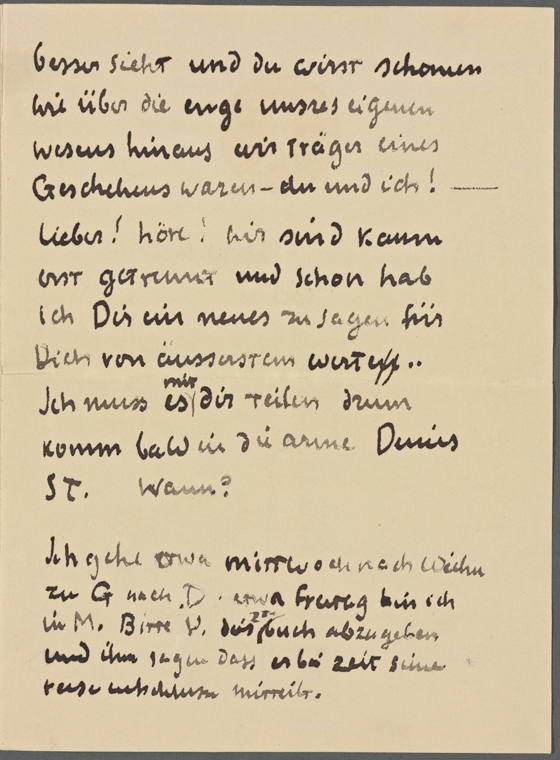 besser sieht und du wirst schauen
wie über die enge unsres eigenen
wesens hinaus wir träger eines
Geschehens waren – du und ich! —
Lieber! höre! wir sind kaum
erst getrennt und schon hab
ich Dir ein neues zu sagen für
Dich von äusserstem wert..
Ich muss es mit dir teilen drum
komm bald in die arme Deines
ST. Wann?
Ich gehe etwa mittwoch nach
zu G nach D. etwa freitag bin ich
in M. Bitte V. das buch abzugeben
und ihm sagen dass er bei zeit seine
mitteilt.